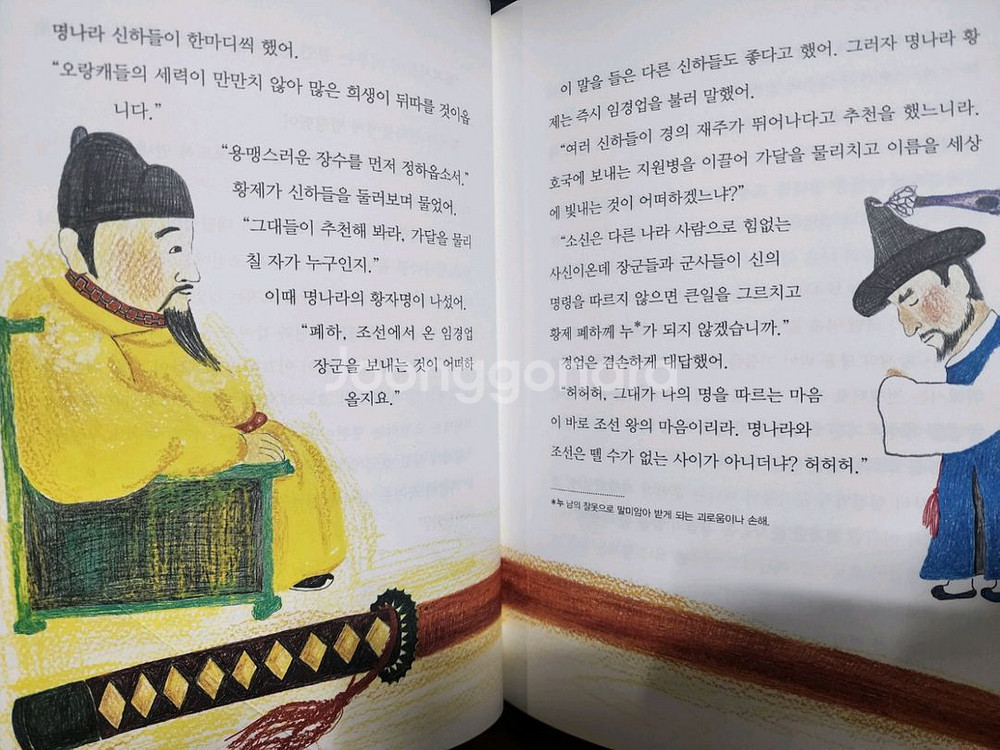 명나라 신하들이 한마디씩 했어.
“오랑캐들의 세력이 만만치 않아 많은 희생이 뒤따를 것이옵
니다.”
“용맹스러운 장수를 먼저 정하옵소서.”
황제가 신하들을 둘러보며 물었어.
“그대들이 추천해 봐라, 가달을 물리
칠 자가 누구인지.”
이때 명나라의 황자명이 나섰어.
“폐하, 조선에서 온 임경업
장군을 보내는 것이 어떠하
올지요.”
이 말을 들은 다른 신하들도 좋다고 했어. 그러자 명나라 황
제는 즉시 임경업을 불러 말했어.
“여러 신하들이 경의 재주가 뛰어나다고 추천을 했느니라.
호국에 보내는 지원병을 이끌어 가달을 물리치고 이름을 세상
에 빛내는 것이 어떠하겠느냐?”
“소신은 다른 나라 사람으로 힘없는
사신이온데 장군들과 군사들이 신의
명령을 따르지 않으면 큰일을 그르치고
황제 폐하께 누*가 되지 않겠습니까.”
경업은 겸손하게 대답했어.
“허허허, 그대가 나의 명을 따르는 마음
이 바로 조선 왕의 마음이리라. 명나라와
조선은 뗄 수가 없는 사이가 아니더냐? 허허허.”
*누 남의 잘못으로 말미암아 받게 되는 괴로움이나 손해.
Joonggonara